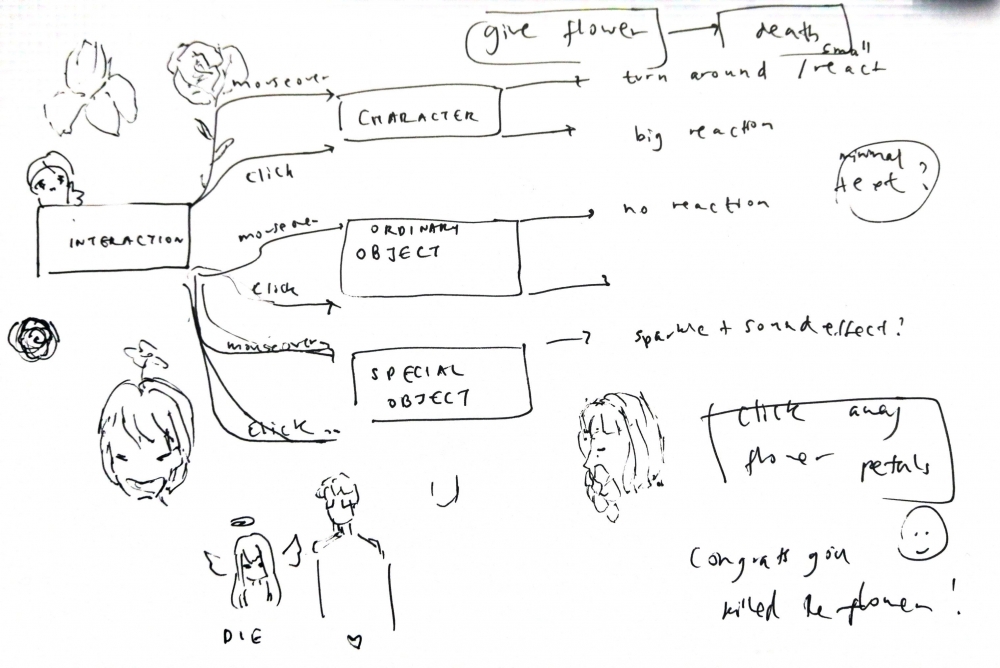 give flower
death
mouseover
small
turn around / react
CHARACTER
big reaction
click
minimal
text?
mouseover
no reaction
INTERACTION
ORDINARY
OBJECT
click
mouseover
sparkle + sound effect?
SPECIAL
OBJECT
click ..
click away
flower petals
Congrats you
killed the flower!
DIE